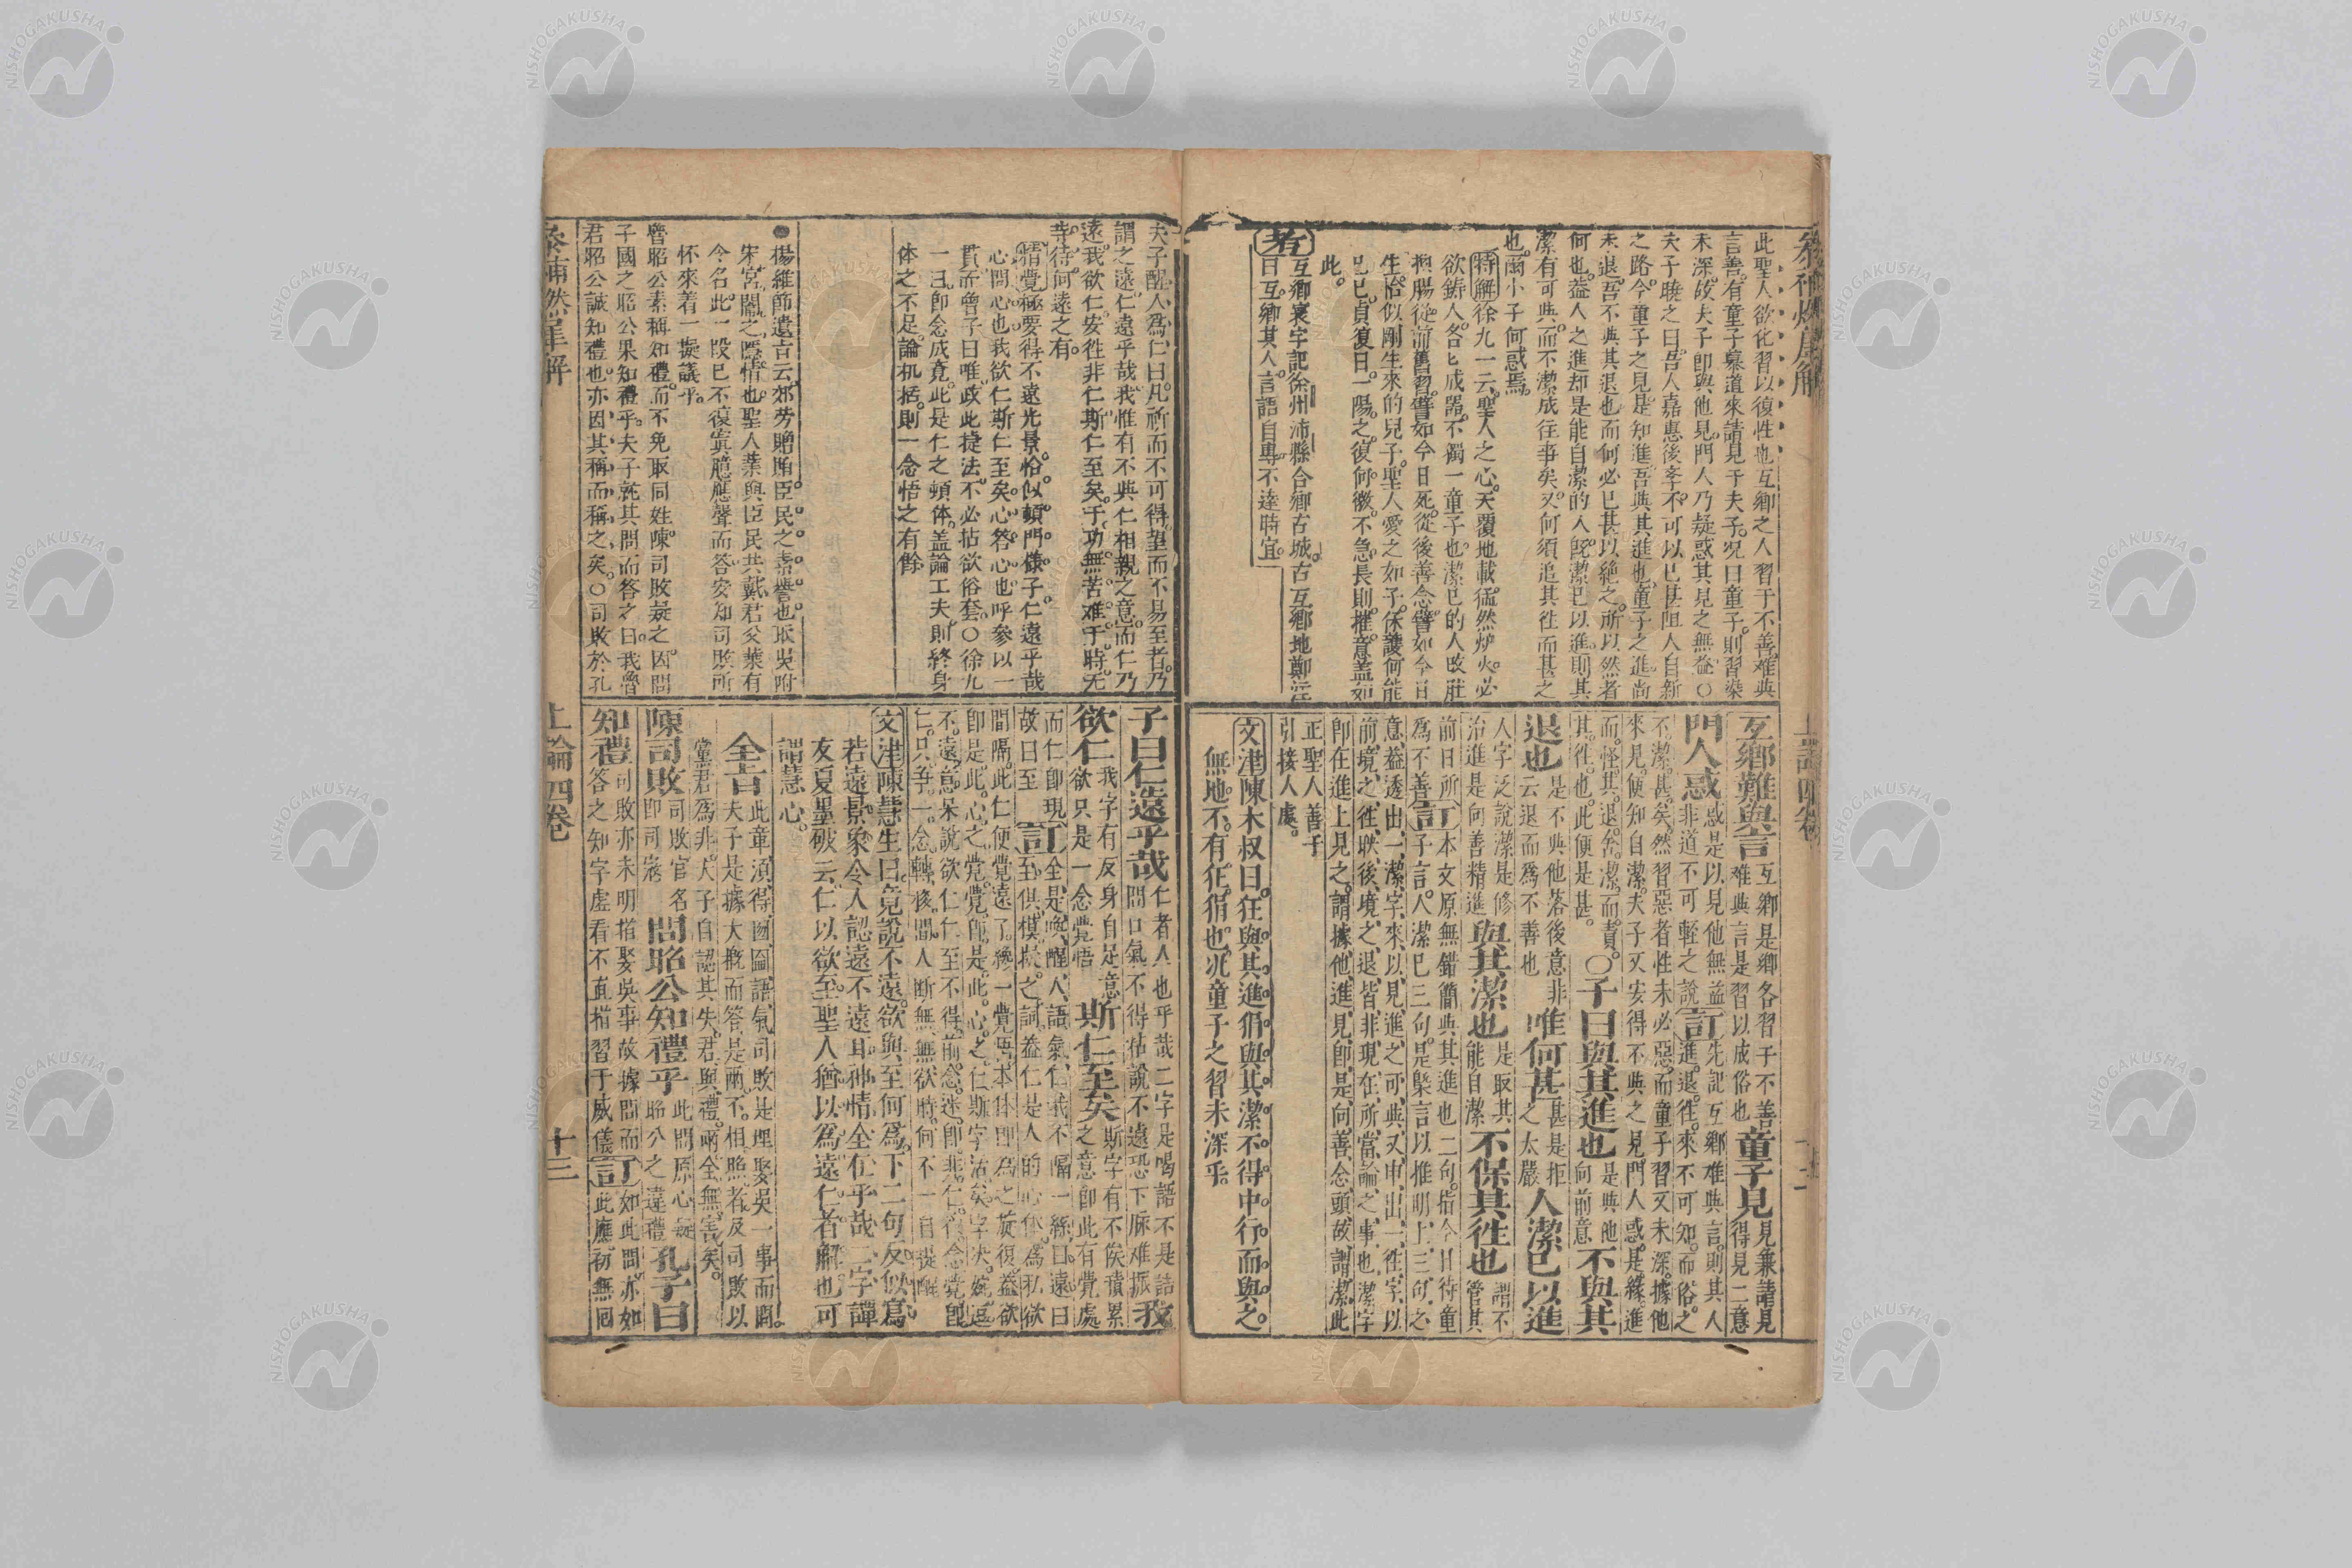 此聖人欲化習以復性也互鄉之人習于不善难與
言善有童子慕道來請見于夫子况曰童子則習染
未深故夫子即與他見門人乃疑惑其見之無益○
夫子曉之曰吾人嘉惠後孝不可以已甚阻人自新
之路今童子之見是知進吾與其進也童子之進尚
未退吾不與其退也而何必已甚以絶之所以然者
何也益人之進却是能自潔的人既潔已以進則其
潔有可與而不潔成往事矣又何須追其徃而甚之
也爾小子何惑焉
特解徐九一云聖人之心天覆地載猛然炉火必
欲鋳人各七成噐不獨一童子也潔已的人改肚
換腸從前舊習譬如今日死從後善念譬如今日
生恰似剛生來的兒子聖人愛之如子保護何能
已已貞復日一陽之復何微不急長則摧意盖如
此
考
互鄉寰宇記徐州沛縣合鄉古城古互鄉地鄭註
曰互鄉其人言語自專不逹時宜
互鄉難與言互鄉是鄉各習于不善难與言是習以成俗也童子見見兼請見得見二意
門人惑惑是以見他無益非道不可輕之說訂先記互鄉难與言則其人進退徃來不可知而俗之
不潔甚矣然習惡者性未必惡而童子習又未深據他
來見便知自潔夫子又安得不與之見門人惑是緣進
而怪其退舍潔而責其徃也此便是甚○子曰與其進也是與他向前意不與其
退也是不與他落後意非云退而爲不善也唯何甚甚是拒之太嚴人潔已以進
人字泛說潔是修治進是向善精進與其潔也是取其能自潔不保其徃也謂不管其
前日所爲不善訂本文原無錯簡與其進也二句指今日待童
子言人潔已三句是槩言以推明上三句之
意益透出一潔字來以見進之可與又申出一徃字以
前境之徃映後境之退皆非現在所當論之事也潔字
即在進上見之謂據他進見即是向善念頭故謂潔此
正聖人善于
引接人處
文津陳木叔曰狂與其進狷與其潔不得中行而與之
無地不有狂狷也况童子之習未深乎
夫子醒人爲仁曰凡祈而不可得望而不易至者乃
謂之遠仁遠乎哉我惟有不與仁相親之意而仁乃
遠我欲仁安徃非仁斯仁至矣于功無苦难于時无
等待何遠之有
精覺極要得不遠光景恰似頓門㨾子仁遠乎哉
心問心也我欲仁斯仁至矣心答心也呼參以一
貫而曾子曰唯政此捷法不必拈欲俗套○徐九
一曰即念成竟此是仁之頓体盖論工夫則終身
体之不足論机括則一念悟之有餘
●楊維節遺言云郊勞贈賄臣民之素譽也㫺吳附
宋宮闈之隱情也聖人業與臣民共戴君父業有
令名此一段已不復寘臆應聲而答安知司敗所
怀來着一擬議乎
魯昭公素稱知禮而不免取同姓陳司敗疑之因問
子國之昭公果知禮乎夫子就其問而答之曰我魯
君昭公誠知禮也亦因其稱而稱之矣○司敗於孔
子曰仁遠乎哉仁者人也乎哉二字是喝語不是詰問口氣不得怙說不遠恐下脉难振我
欲仁我字有反身自足意欲只是一念覺悟斯仁至矣斯字有不俟積累之意即此有覺處
而仁即現故曰至訂全是喚醒人語氣仁我不隔一絲曰遠曰
至俱模擬之詞益仁是人的心体爲私欲
間隔此仁便覺遠了纔一覺悟本体即爲之旋復益欲
即是此心之覺覺即是此心之仁斯字沽矣字决宛逗
不遠意呆說欲仁仁至不得前念迷即非仁後念覺即
仁只爭一念轉移間人断無無欲時何不一自提醒
文津陳慧生曰竟說不遠欲與至何爲下二句反似寫
若遠景象令人認遠不遠耳神情全在乎哉二字譚
友夏墨破云仁以欲至聖人猶以爲遠仁者解也可
謂慧心
全旨此章須得囫圇語氣司敗是埋娶吳一事而問
夫子是據大概而答是兩不相照者及司敗以
黨君爲非夫子自認其失君與禮兩全無害矣
陳司敗司敗官名即司寇問昭公知禮乎此問原心疑昭公之違禮孔子曰
知禮答之知字虚看不直指習于威儀司敗亦未明指娶吳事故據問而訂如此問亦如此應初無囘
參補然犀解
上論四卷
十三